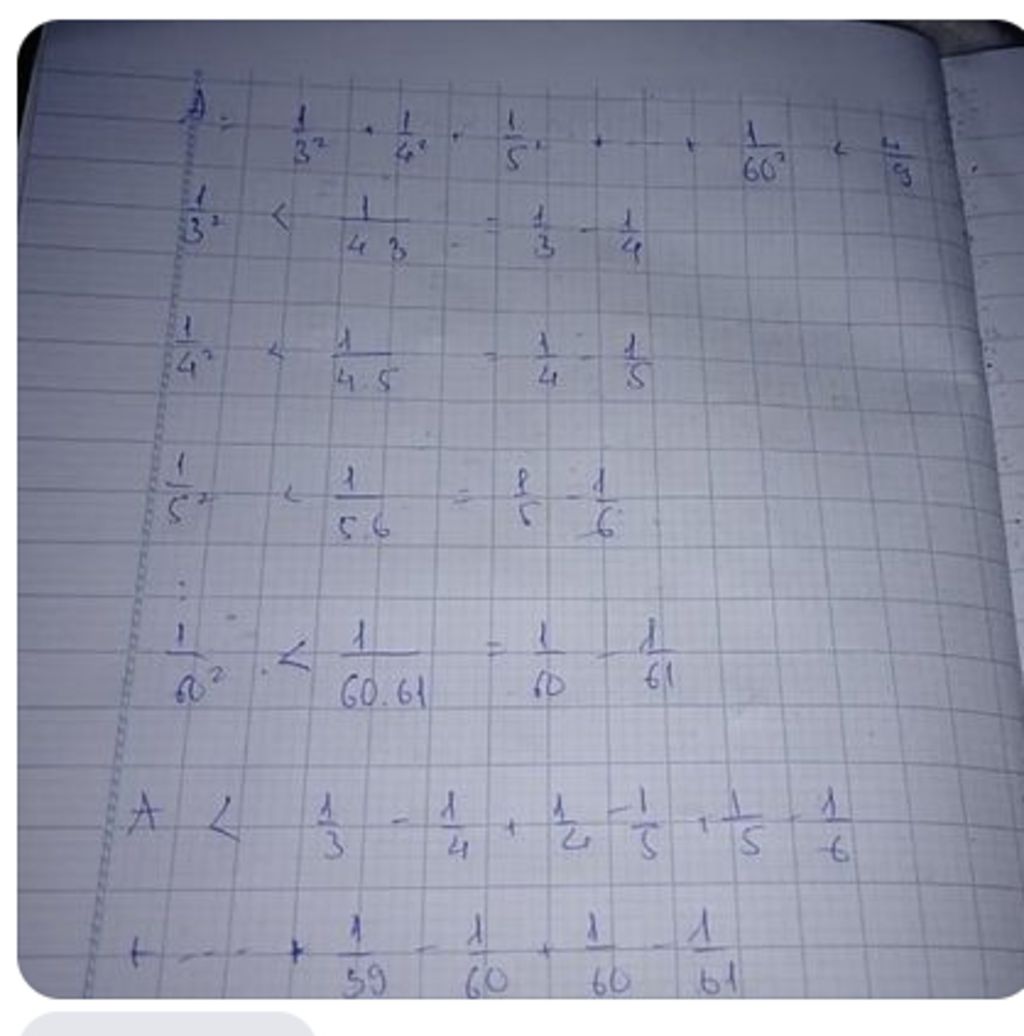 A = 1/3² + 1/4² + 1/5² + ... + 1/60² < 4/9
1/3² < 1/4.3 = 1/3 - 1/4
1/4² < 1/4.5 = 1/4 - 1/5
1/5² < 1/5.6 = 1/5 - 1/6
⋮
1/60² < 1/60.61 = 1/60 - 1/61
A < 1/3 - 1/4 + 1/4 - 1/5 + 1/5 - 1/6
+ ---- + 1/59 - 1/60 + 1/60 - 1/61